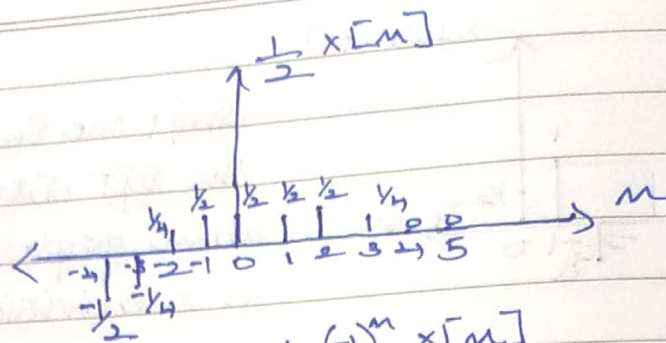 1/2 x[n]
1/4 1/2 1/2 1/2 1/2 1/4 0 0 n
-4 -3 -2 -1 0 1 2 3 4 5
-1/2 -1/4
(-1)^n x[n]